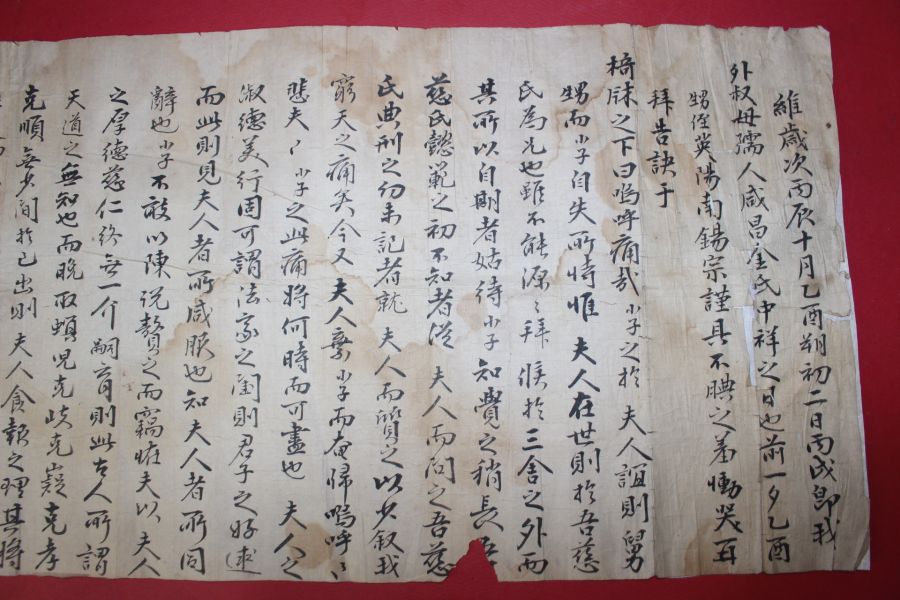 維歲次丙辰十月乙酉朔初二日丙戌卽我
外叔母孺人咸昌金氏中祥之日也前一夕乙酉
甥侄英陽南錫宗謹具不腆之羞慟哭再
拜告訣于
椅牀之下曰嗚呼痛哉小子之於 夫人誼則舅
甥而小子自失所恃惟 夫人在世則於吾慈
氏為兄也雖不能源〻拜候於三舍之外而
其所以自期者姑待小子知覺之稍長
慈氏懿範之初不知者從 夫人而問之吾慈
氏典刑之勿未記者就 夫人而質之以少叙我
窮天之痛矣今又 夫人棄小子而奄歸嗚呼〻
悲夫〻小子之此痛將何時而可盡也 夫人之
淑德美行固可謂法家之閫則君子之好逑
而此則見夫人者所咸服也知夫人者所同
辭也小子不敢以陳說贅之而竊惟夫以 夫人
之厚德慈仁終無一介嗣育則此古人所謂
天道之無知也而晚取螟兒克岐克嶷克孝
克順無少間於己出則 夫人食報之理其將